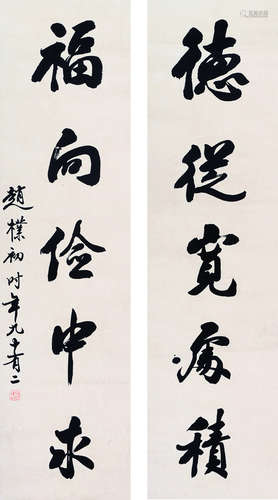 德從寬處積
福向儉中求
趙樸初时年九十有二